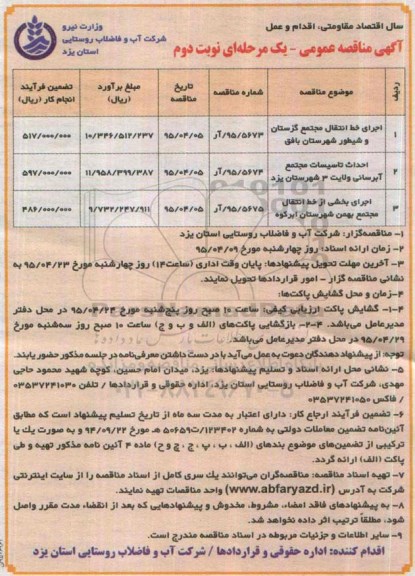 سال اقتصاد مقاومتی، اقدام و عمل
وزارت نیرو
شرکت آب و فاضلاب روستایی
استان یزد
آگهی مناقصه عمومی - یک مرحله‌ای نوبت دوم
ردیف | موضوع مناقصه | شماره مناقصه | تاریخ مناقصه | مبلغ برآورد (ریال) | تضمین فرآیند انجام کار (ریال)
۱ | اجرای خط انتقال مجتمع گزستان و شیطور شهرستان بافق | ۹۵/۵۶۷۳/آر | ۹۵/۰۴/۰۵ | ۱۰/۳۴۶/۵۱۲/۲۳۷ | ۵۱۷/۰۰۰/۰۰۰
۲ | احداث تاسیسات مجتمع آبرسانی ولایت ۳ شهرستان یزد | ۹۵/۵۶۷۴/آر | ۹۵/۰۴/۰۵ | ۱۱/۹۵۸/۳۹۹/۳۸۷ | ۵۹۷/۰۰۰/۰۰۰
۳ | اجرای بخشی از خط انتقال مجتمع بهمن شهرستان ابرکوه | ۹۵/۵۶۷۵/آر | ۹۵/۰۴/۰۵ | ۹/۷۳۲/۲۴۷/۹۱۱ | ۴۸۶/۰۰۰/۰۰۰
۱- مناقصه‌گزار: شرکت آب و فاضلاب روستایی استان یزد
۲- زمان ارائه اسناد: روز چهارشنبه مورخ ۹۵/۰۴/۰۹
۳- آخرین مهلت تحویل پیشنهادها: پایان وقت اداری (ساعت۱۴) روز چهارشنبه مورخ ۹۵/۰۴/۲۳ به
نشانی مناقصه گزار - امور قراردادها تحویل نمایند.
۴-زمان و محل گشایش پاکت‌ها:
۴-۱- گشایش پاکت ارزیابی کیفی: ساعت ۱۰ صبح روز پنج‌شنبه مورخ ۹۵/۰۴/۲۴ در محل دفتر
مدیرعامل می‌باشد. ۴-۲- بازگشایی پاکت‌های (الف و ب و ج) ساعت ۱۰ صبح روز سه‌شنبه مورخ
۹۵/۰۴/۲۹ در محل دفتر مدیرعامل می‌باشد.
توجه: از پیشنهاد دهندگان دعوت به عمل می‌آید با در دست داشتن معرفی‌نامه در جلسه مذکور حضور یابند.
۵- نشانی محل ارائه اسناد و تسلیم پیشنهادها: یزد، میدان امام حسین، کوچه شهید محمود حاجی
مهدی، شرکت آب و فاضلاب روستایی استان یزد، اداره حقوقی و قراردادها / تلفن ۰۳۵۳۷۲۴۱۰۳۰
/ فاکس ۰۳۵۳۷۲۴۱۰۵۰
۶- تضمین فرآیند ارجاع کار: دارای اعتبار به مدت سه ماه از تاریخ تسلیم پیشنهاد است که مطابق
آئین‌نامه تضمین معاملات دولتی به شماره ۱۲۳۴۰۲/ت۵۰۶۵۹ ه مورخ ۹۴/۰۹/۲۲ و به صورت یک یا
ترکیبی از تضمین‌های موضوع بندهای (الف ، ب ، پ ، ج ، چ و ح) ماده ۴ آئین نامه مذکور تهیه و طی
پاکت (الف) ارائه گردد.
۷- تهیه اسناد مناقصه: مناقصه‌گران می‌توانند یک سری کامل از اسناد مناقصه را از سایت اینترنتی
شرکت به آدرس (www.abfaryazd.ir) واحد مناقصات تهیه نمایند.
۸- به پیشنهادهای فاقد امضاء، مشروط، مخدوش و پیشنهادهایی که بعد از انقضاء، مدت مقرر واصل
شود، مطلقاً ترتیب اثر داده نخواهد شد.
۹- سایر اطلاعات و جزئیات مربوطه در اسناد مناقصه مندرج است.
اقدام کننده: اداره حقوقی و قراردادها / شرکت آب و فاضلاب روستایی استان یزد